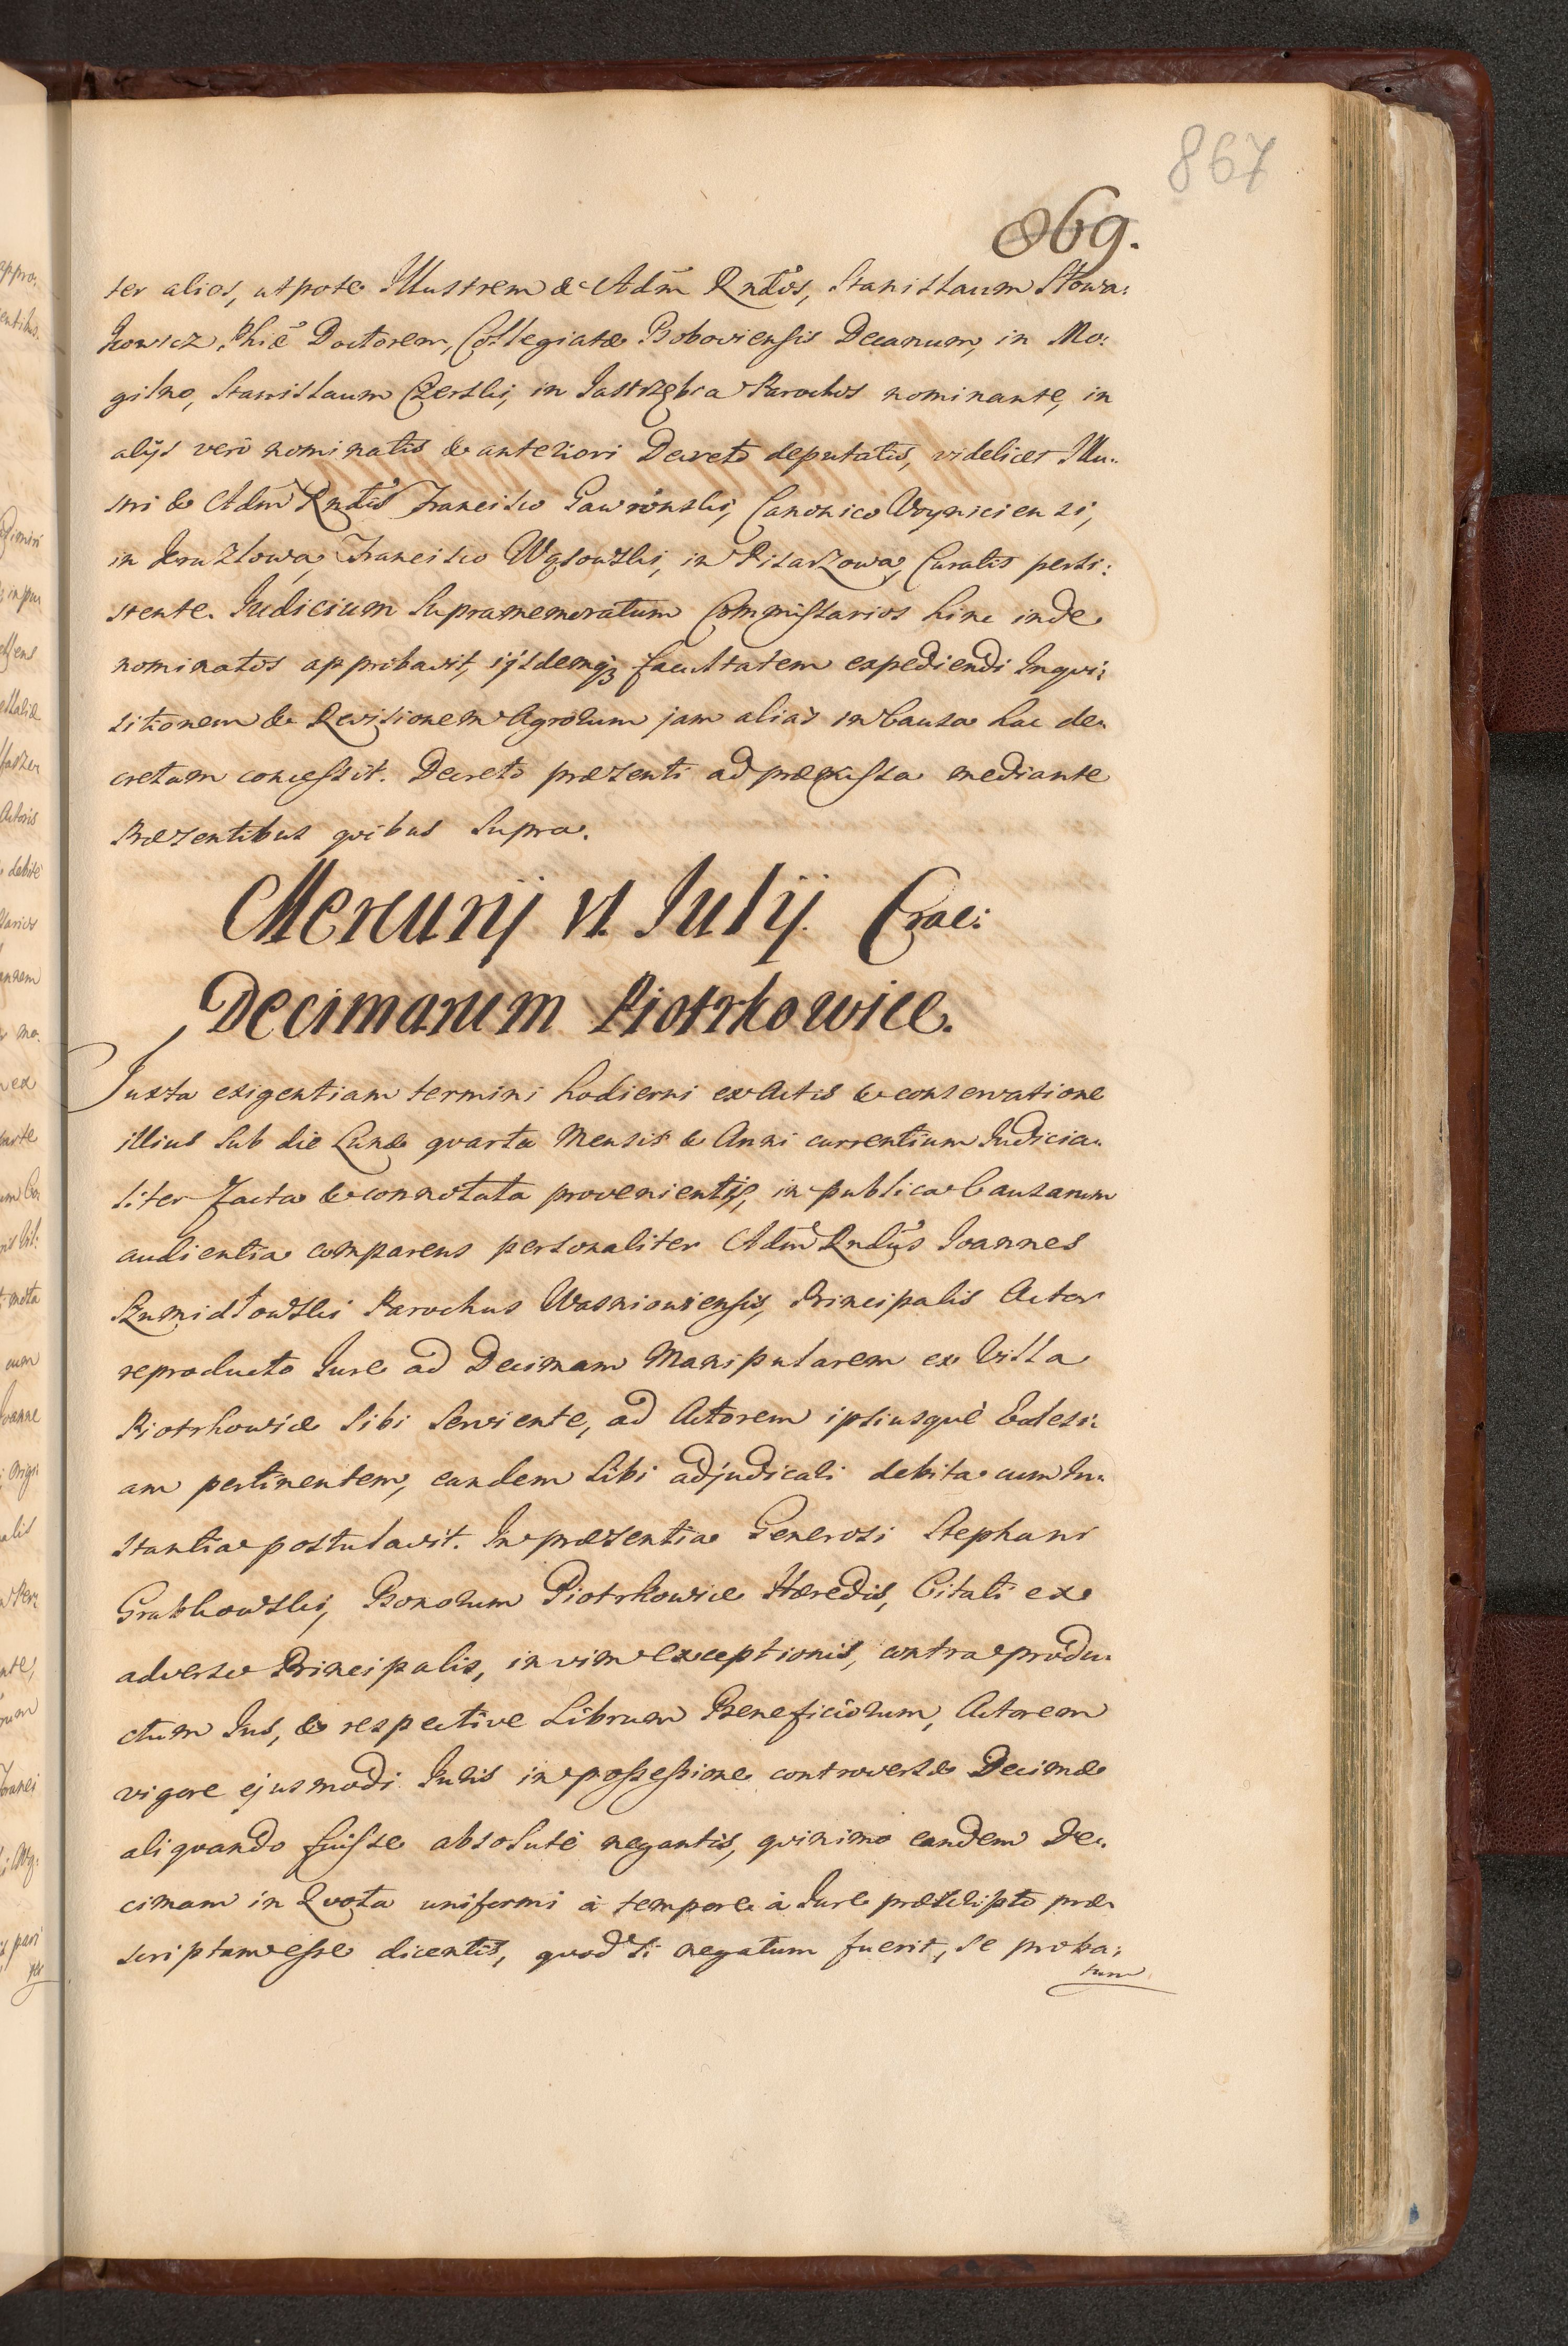 867
869.
ter alios, utpote Illustrem & Adm̃ Rndos, Stanislaum Słowa:
kowicz Phiæ Doctorem, Collegiatæ Boboviensis Decanum, in Mo:
gilno, Stanislaum Czerski, in Jastrzębia Parochos nominante, in
alijs verò nominatis & anteriori Decreto deputatis, videlicet Illu:
stri & Adm̃ Rndis Francisco Gawroński, Canonico Woyniciensi,
in Kruzlowa, Francisco Wąsowski, in Pisarzowa, Curatis persi:
stente. Judicium Supramemoratum Commissarios hinc inde
nominatos approbavit, ijsdemq; facultatem expediendi Inqvi:
sitionem & Revisionem Agrorum jam alias in Causa hac de:
cretam concessit. Decreto præsenti ad præmissa mediante
Præsentibus qvibus Supra.
Mercurij VI. Julij. Crac:
Decimarum Piotrkowice.
Juxta exigentiam termini hodierni ex Actis & conservatione
illius Sub die Lunæ qvarta Mensis & Anni currentium Judicia:
liter facta & connotata provenientis, in publica Causarum
audientia comparens personaliter Adm̃ Rndus Joannes
Szmidłowski Parochus Wasnioviensis, Principalis Actor
reproducto Jure ad Decimam Manipularem ex Villa
Piotrkowice Sibi Serviente, ad Actorem ipsiusquè Ecclesi:
am pertinentem, eandem Sibi adjudicari debita cum In:
stantia postulavit. In præsentia Generosi Stephani
Grabkowski, Bonorum Piotrkowice Hæredis, Citati ex
adverso Principalis, in vim exceptionis, contra produ:
ctum Jus, & respective Librum Beneficiorum, Actorem
vigore ejusmodi Juris in possessione controversæ Decimæ
aliqvando fuisse absolutè negantis, qvinimo eandem De:
cimam in Qvota uniformi à tempore à Jure præscripto præ:
scriptam esse dicentis, qvod si negatum fuerit, se proba:
tum